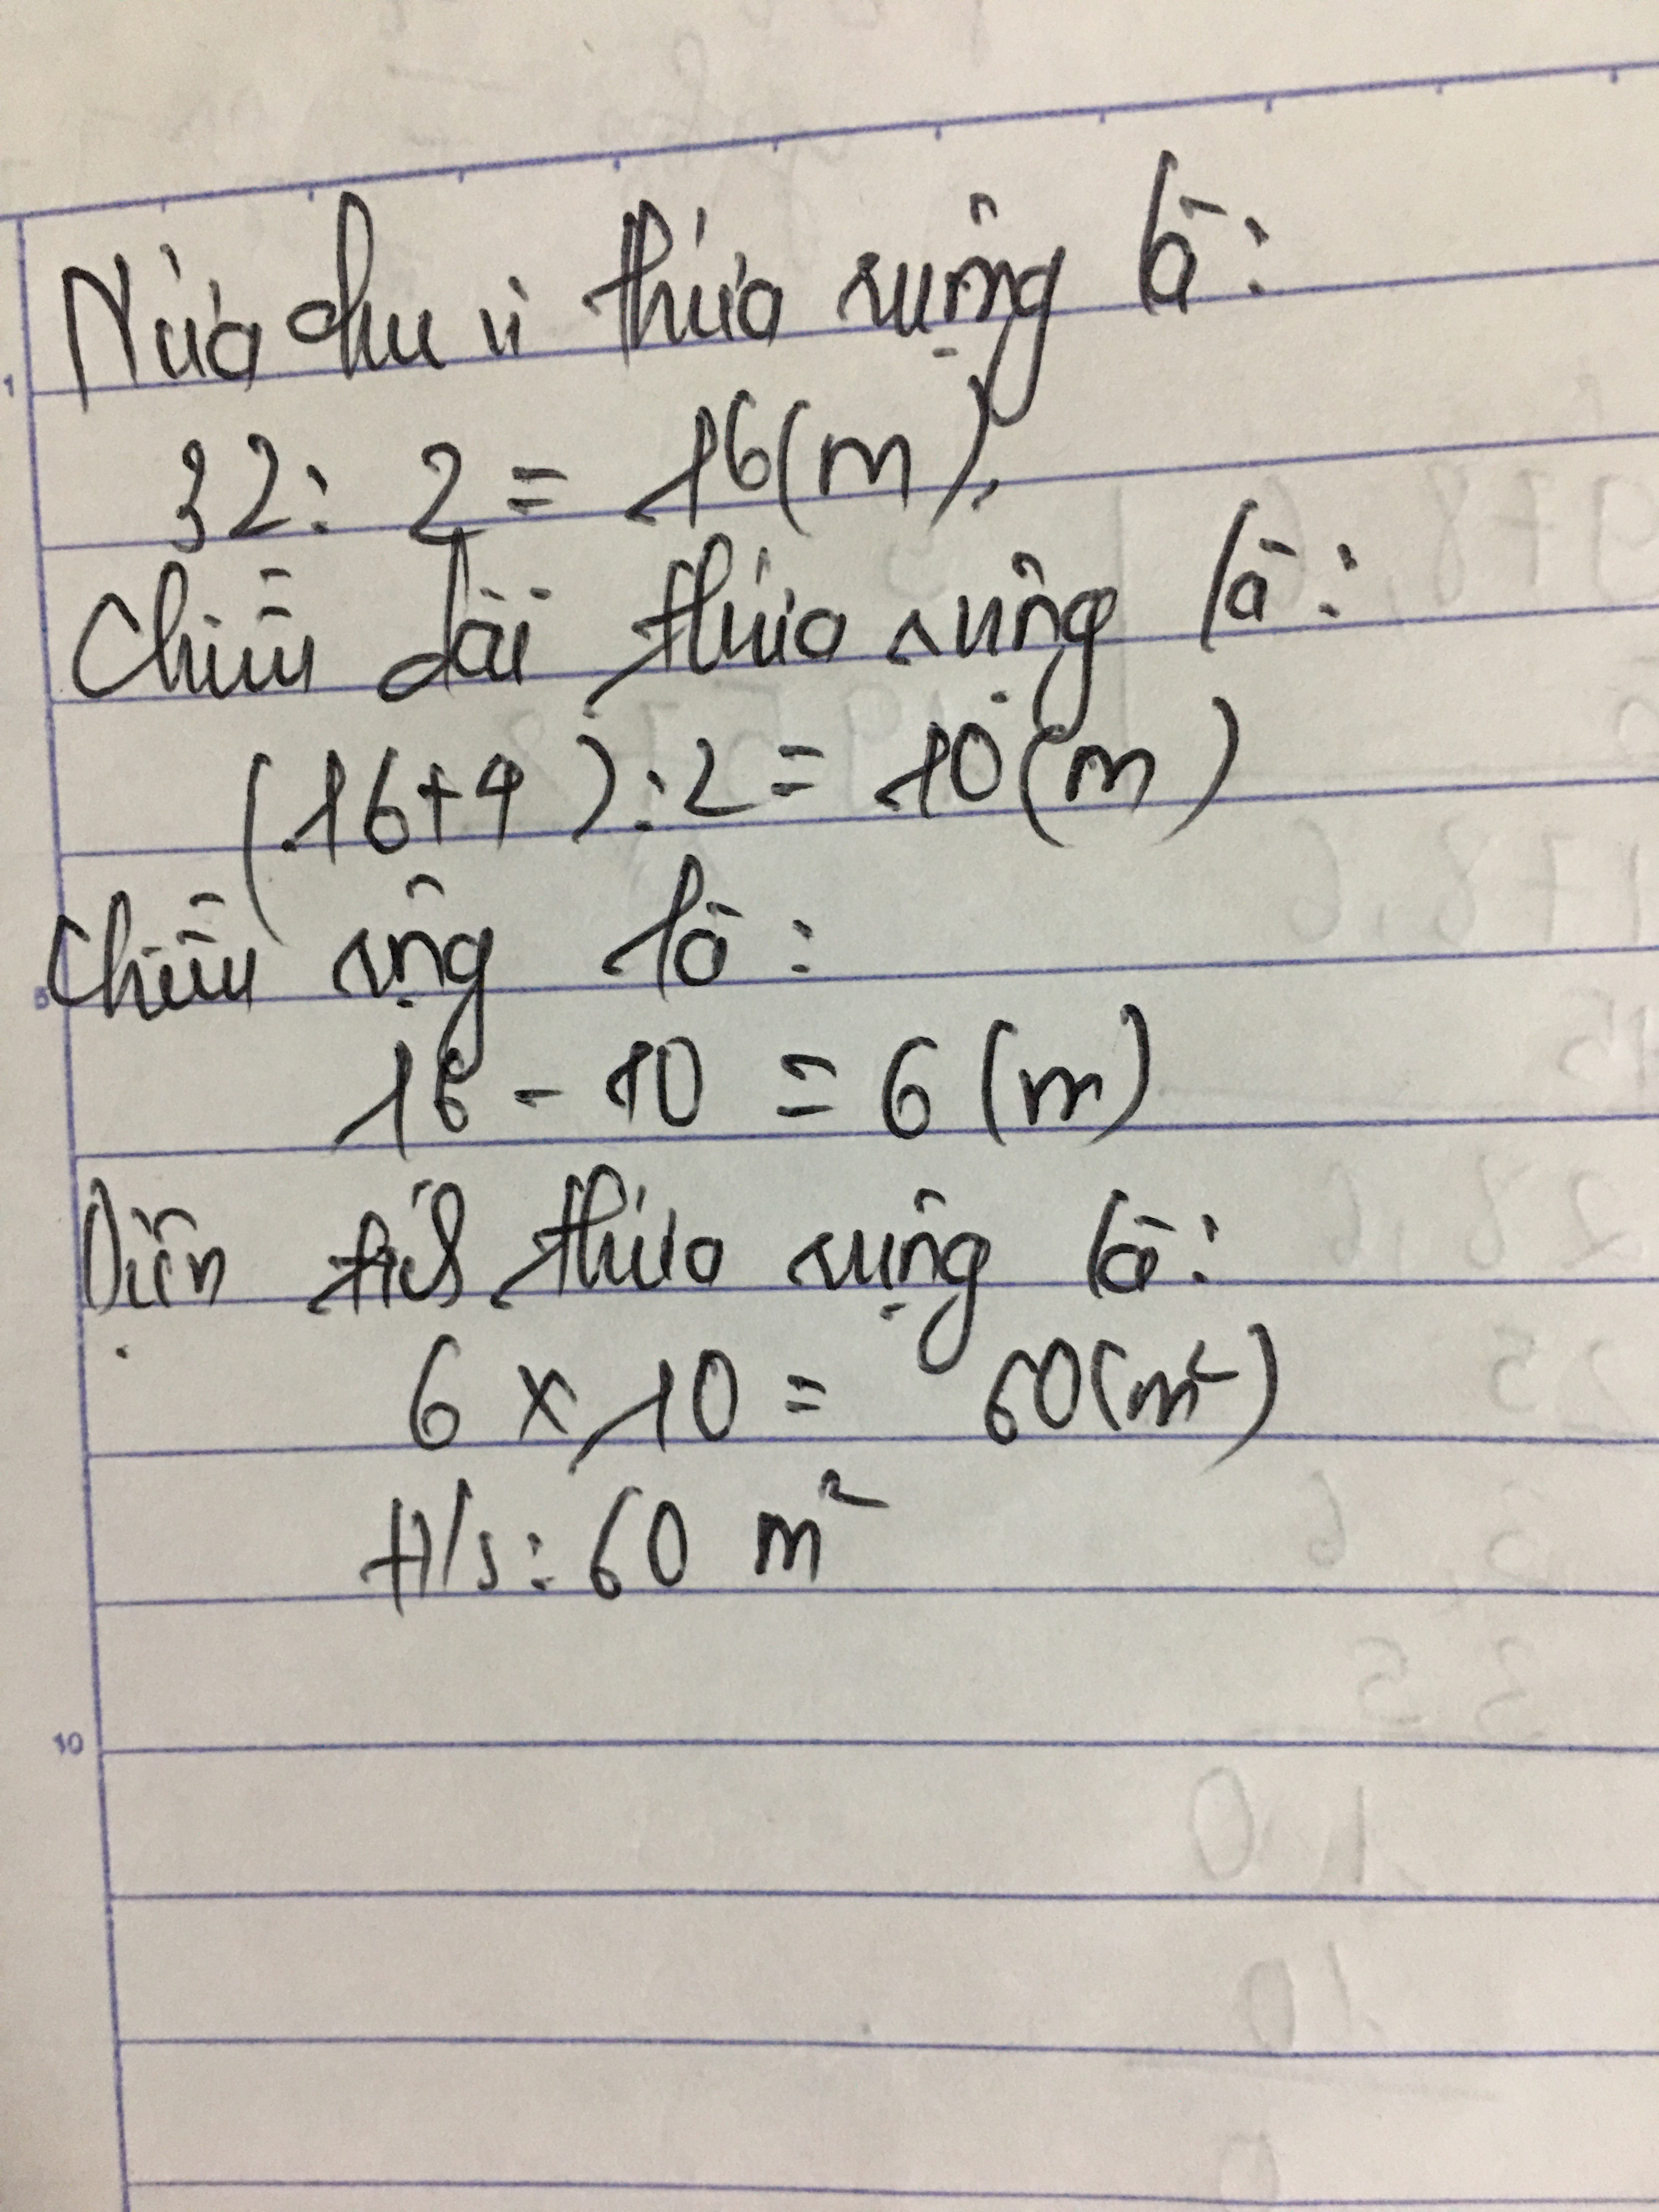 Nửa chu vi thửa ruộng là:
32 : 2 = 16 (m).
Chiều dài thửa ruộng là:
(16 + 4) : 2 = 10 (m)
Chiều rộng là:
16 - 10 = 6 (m)
Diện tích thửa ruộng là:
6 x 10 = 60 (m²)
Đ/s: 60 m²